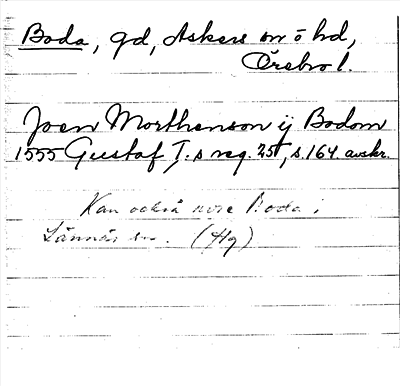 Boda, gd, Askers sn o hd,
Örebro l.
Joen Morthenson ij Bodom
1555 Gustaf I.s reg. 25, s. 164. avskr.
Kan också vara Boda i
Lännäs sn. (Hg)